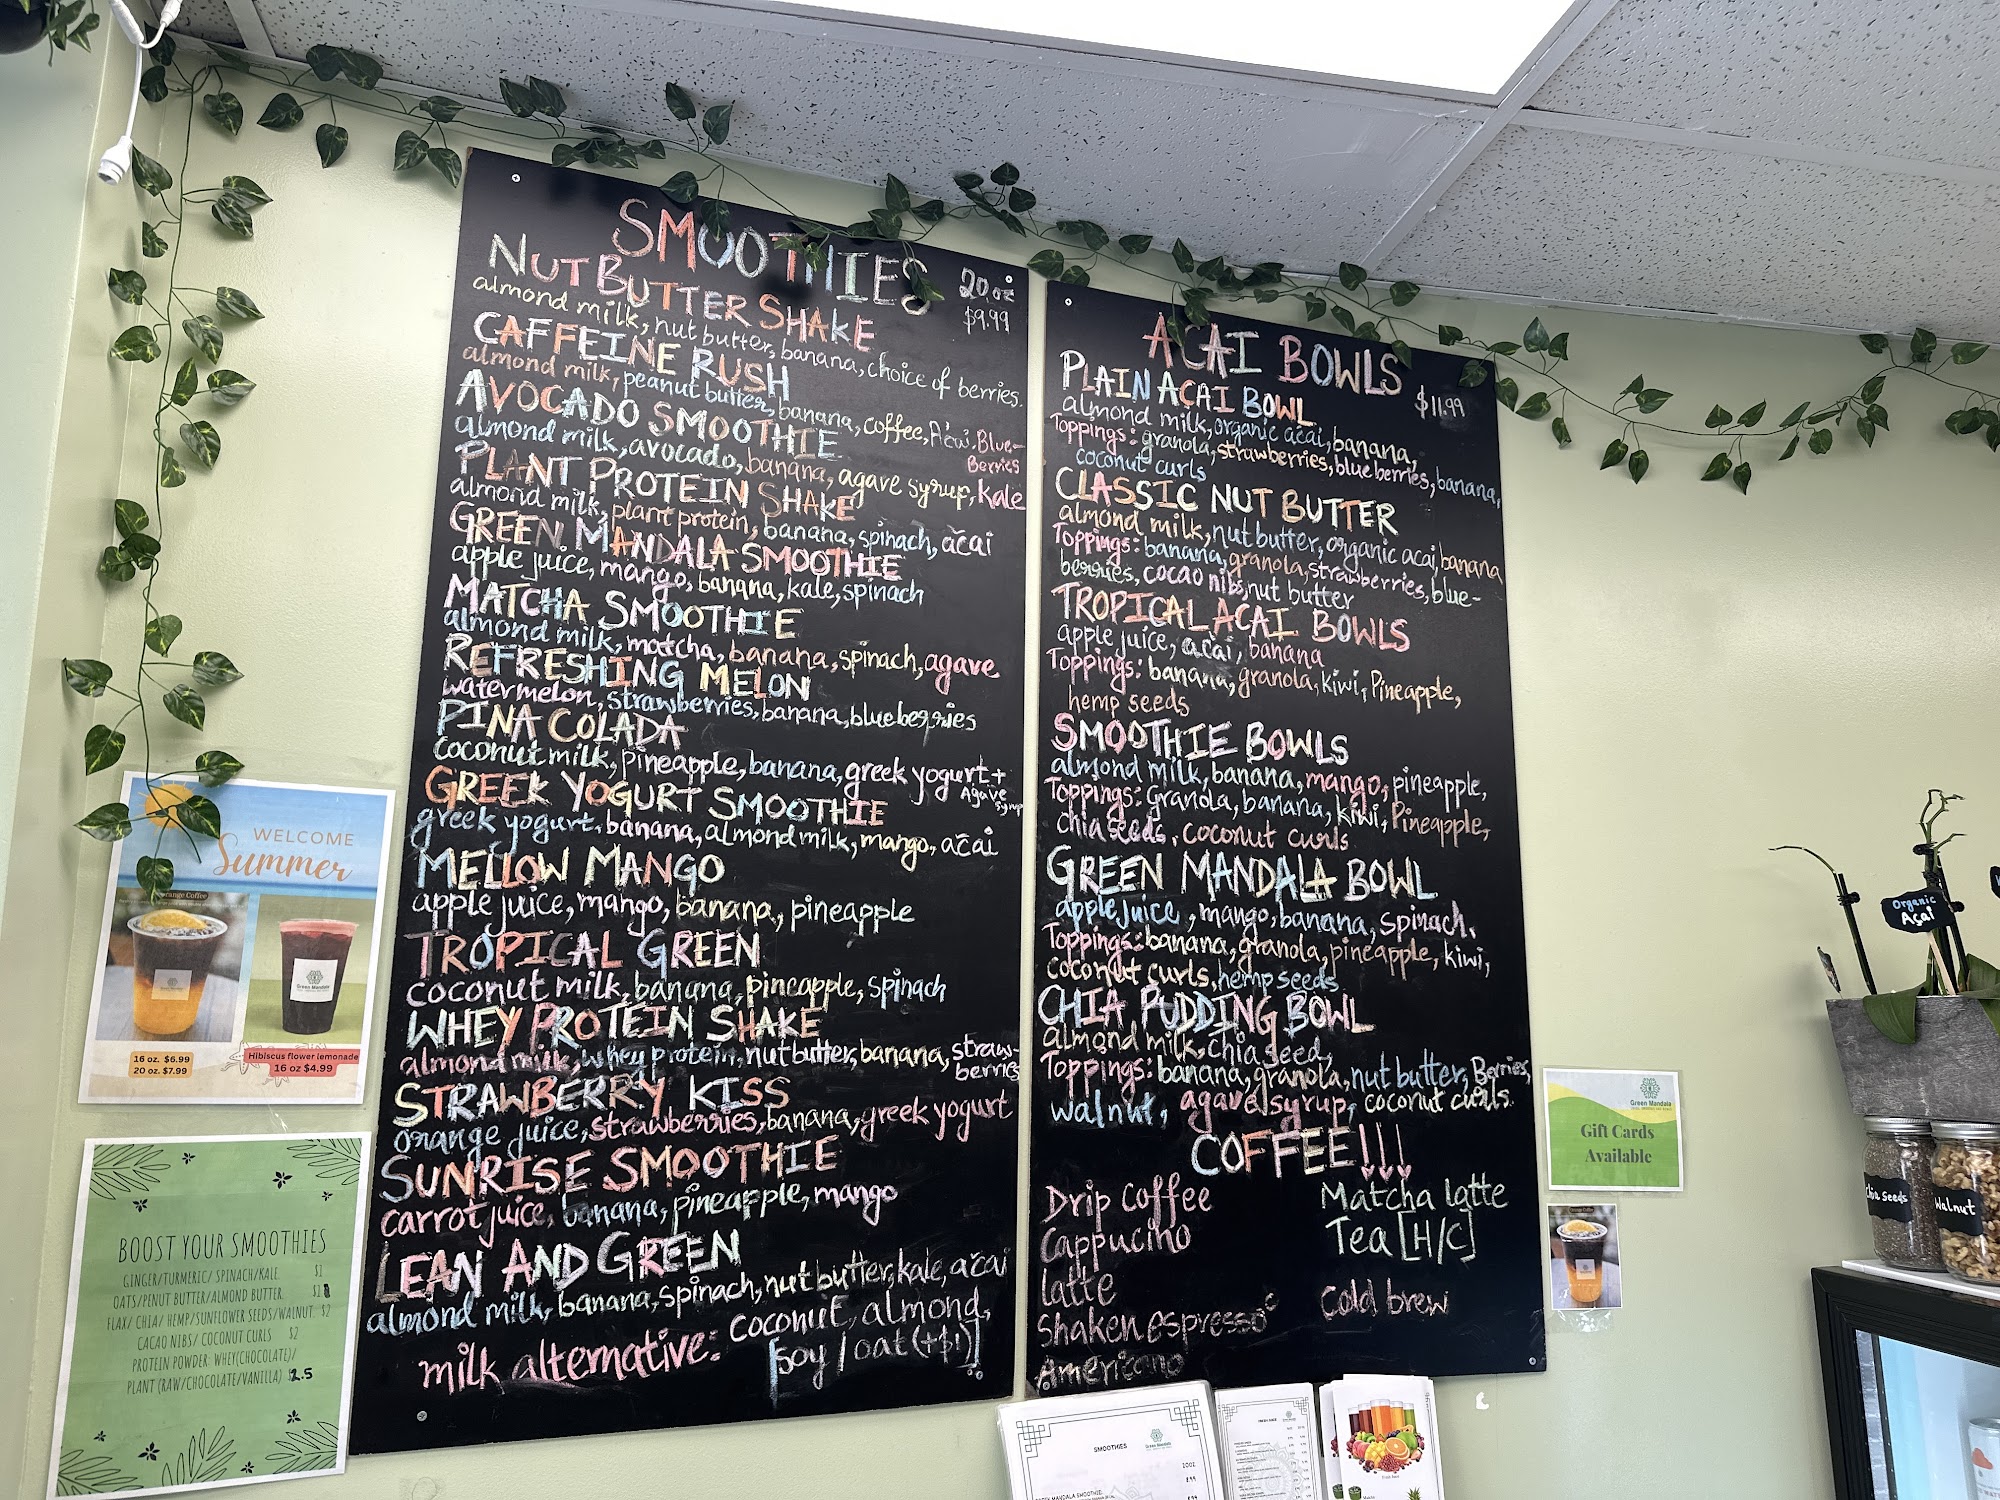 SMOOTHIES
20 oz
$9.99
NUT BUTTER SHAKE
almond milk, nut butter, banana, choice of berries.
CAFFEINE RUSH
almond milk, peanut butter, banana, coffee, Acai, Blue-
Berries
AVOCADO SMOOTHIE
almond milk, avocado, banana, agave syrup, kale
PLANT PROTEIN SHAKE
almond milk, plant protein, banana, spinach, acai
GREEN MANDALA SMOOTHIE
apple juice, mango, banana, kale, spinach
MATCHA SMOOTHIE
almond milk, matcha, banana, spinach, agave
REFRESHING MELON
watermelon, strawberries, banana, blueberries
PINA COLADA
coconut milk, pineapple, banana, greek yogurt +
Agave
Syrup
GREEK YOGURT SMOOTHIE
greek yogurt, banana, almond milk, mango, acai
MELLOW MANGO
apple juice, mango, banana, pineapple
TROPICAL GREEN
coconut milk, banana, pineapple, spinach
WHEY PROTEIN SHAKE
almond milk, whey protein, nut butter, banana, straw-
berries
STRAWBERRY KISS
orange juice, strawberries, banana, greek yogurt
SUNRISE SMOOTHIE
carrot juice, banana, pineapple, mango
LEAN AND GREEN
almond milk, banana, spinach, nut butter, kale, acai
milk alternative: coconut, almond,
[soy / oat (+$1)]
ACAI BOWLS
$11.99
PLAIN ACAI BOWL
almond milk, organic acai, banana,
Toppings: granola, strawberries, blueberries, banana,
coconut curls
CLASSIC NUT BUTTER
almond milk, nut butter, organic acai, banana
Toppings: banana, granola, strawberries, blue-
berries, cocao nibs, nut butter
TROPICAL ACAI BOWLS
apple juice, acai, banana
Toppings: banana, granola, kiwi, Pineapple,
hemp seeds
SMOOTHIE BOWLS
almond milk, banana, mango, pineapple,
Toppings: Granola, banana, kiwi, Pineapple,
chia seeds, coconut curls
GREEN MANDALA BOWL
apple juice, mango, banana, spinach.
Toppings: banana, granola, pineapple, kiwi,
coconut curls, hemp seeds
CHIA PUDDING BOWL
almond milk, chia seed,
Toppings: banana, granola, nut butter, Berries,
walnut, agave syrup, coconut curls.
COFFEE!!!
Drip Coffee
Cappucino
latte
Shaken espresso
Americano
Matcha latte
Tea [H/C]
Cold brew
WELCOME
Summer
Orange Coffee
Green Mandala
16 oz. $6.99
20 oz. $7.99
Hibiscus flower lemonade
16 oz $4.99
BOOST YOUR SMOOTHIES
GINGER/TURMERIC/ SPINACH/KALE $1
OATS/PENUT BUTTER/ALMOND BUTTER.
FLAX/ CHIA/ HEMP/SUNFLOWER SEEDS/WALNUT. $2
CACAO NIBS/ COCONUT CURLS $2
PROTEIN POWDER: WHEY(CHOCOLATE)/
PLANT (RAW/CHOCOLATE/VANILLA) $2.5
Organic
Açai
Green Mandala
Gift Cards
Available
Chia Seeds
Walnut
SMOOTHIES
Green Mandala
20OZ